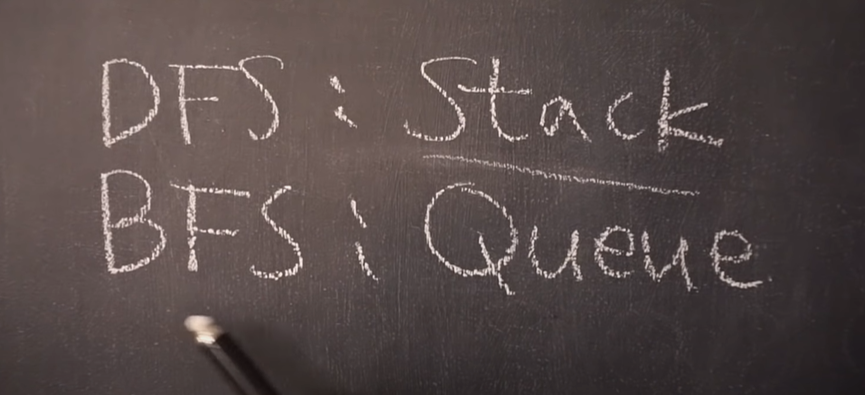 DFS : Stack
BFS : Queue